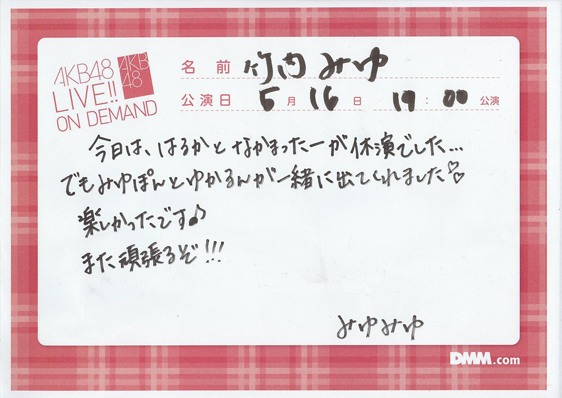 AKB48
LIVE!!
ON DEMAND
AKB
48
名前 竹内みゆ
公演日 5月16日 19:00公演
今日は、はるかとなかまったーが休演でした...
でもみゆぽんとゆかるんが一緒に出てくれました♡
楽しかったです♪
また頑張るぞ!!!
みゆみゆ
DMM.com